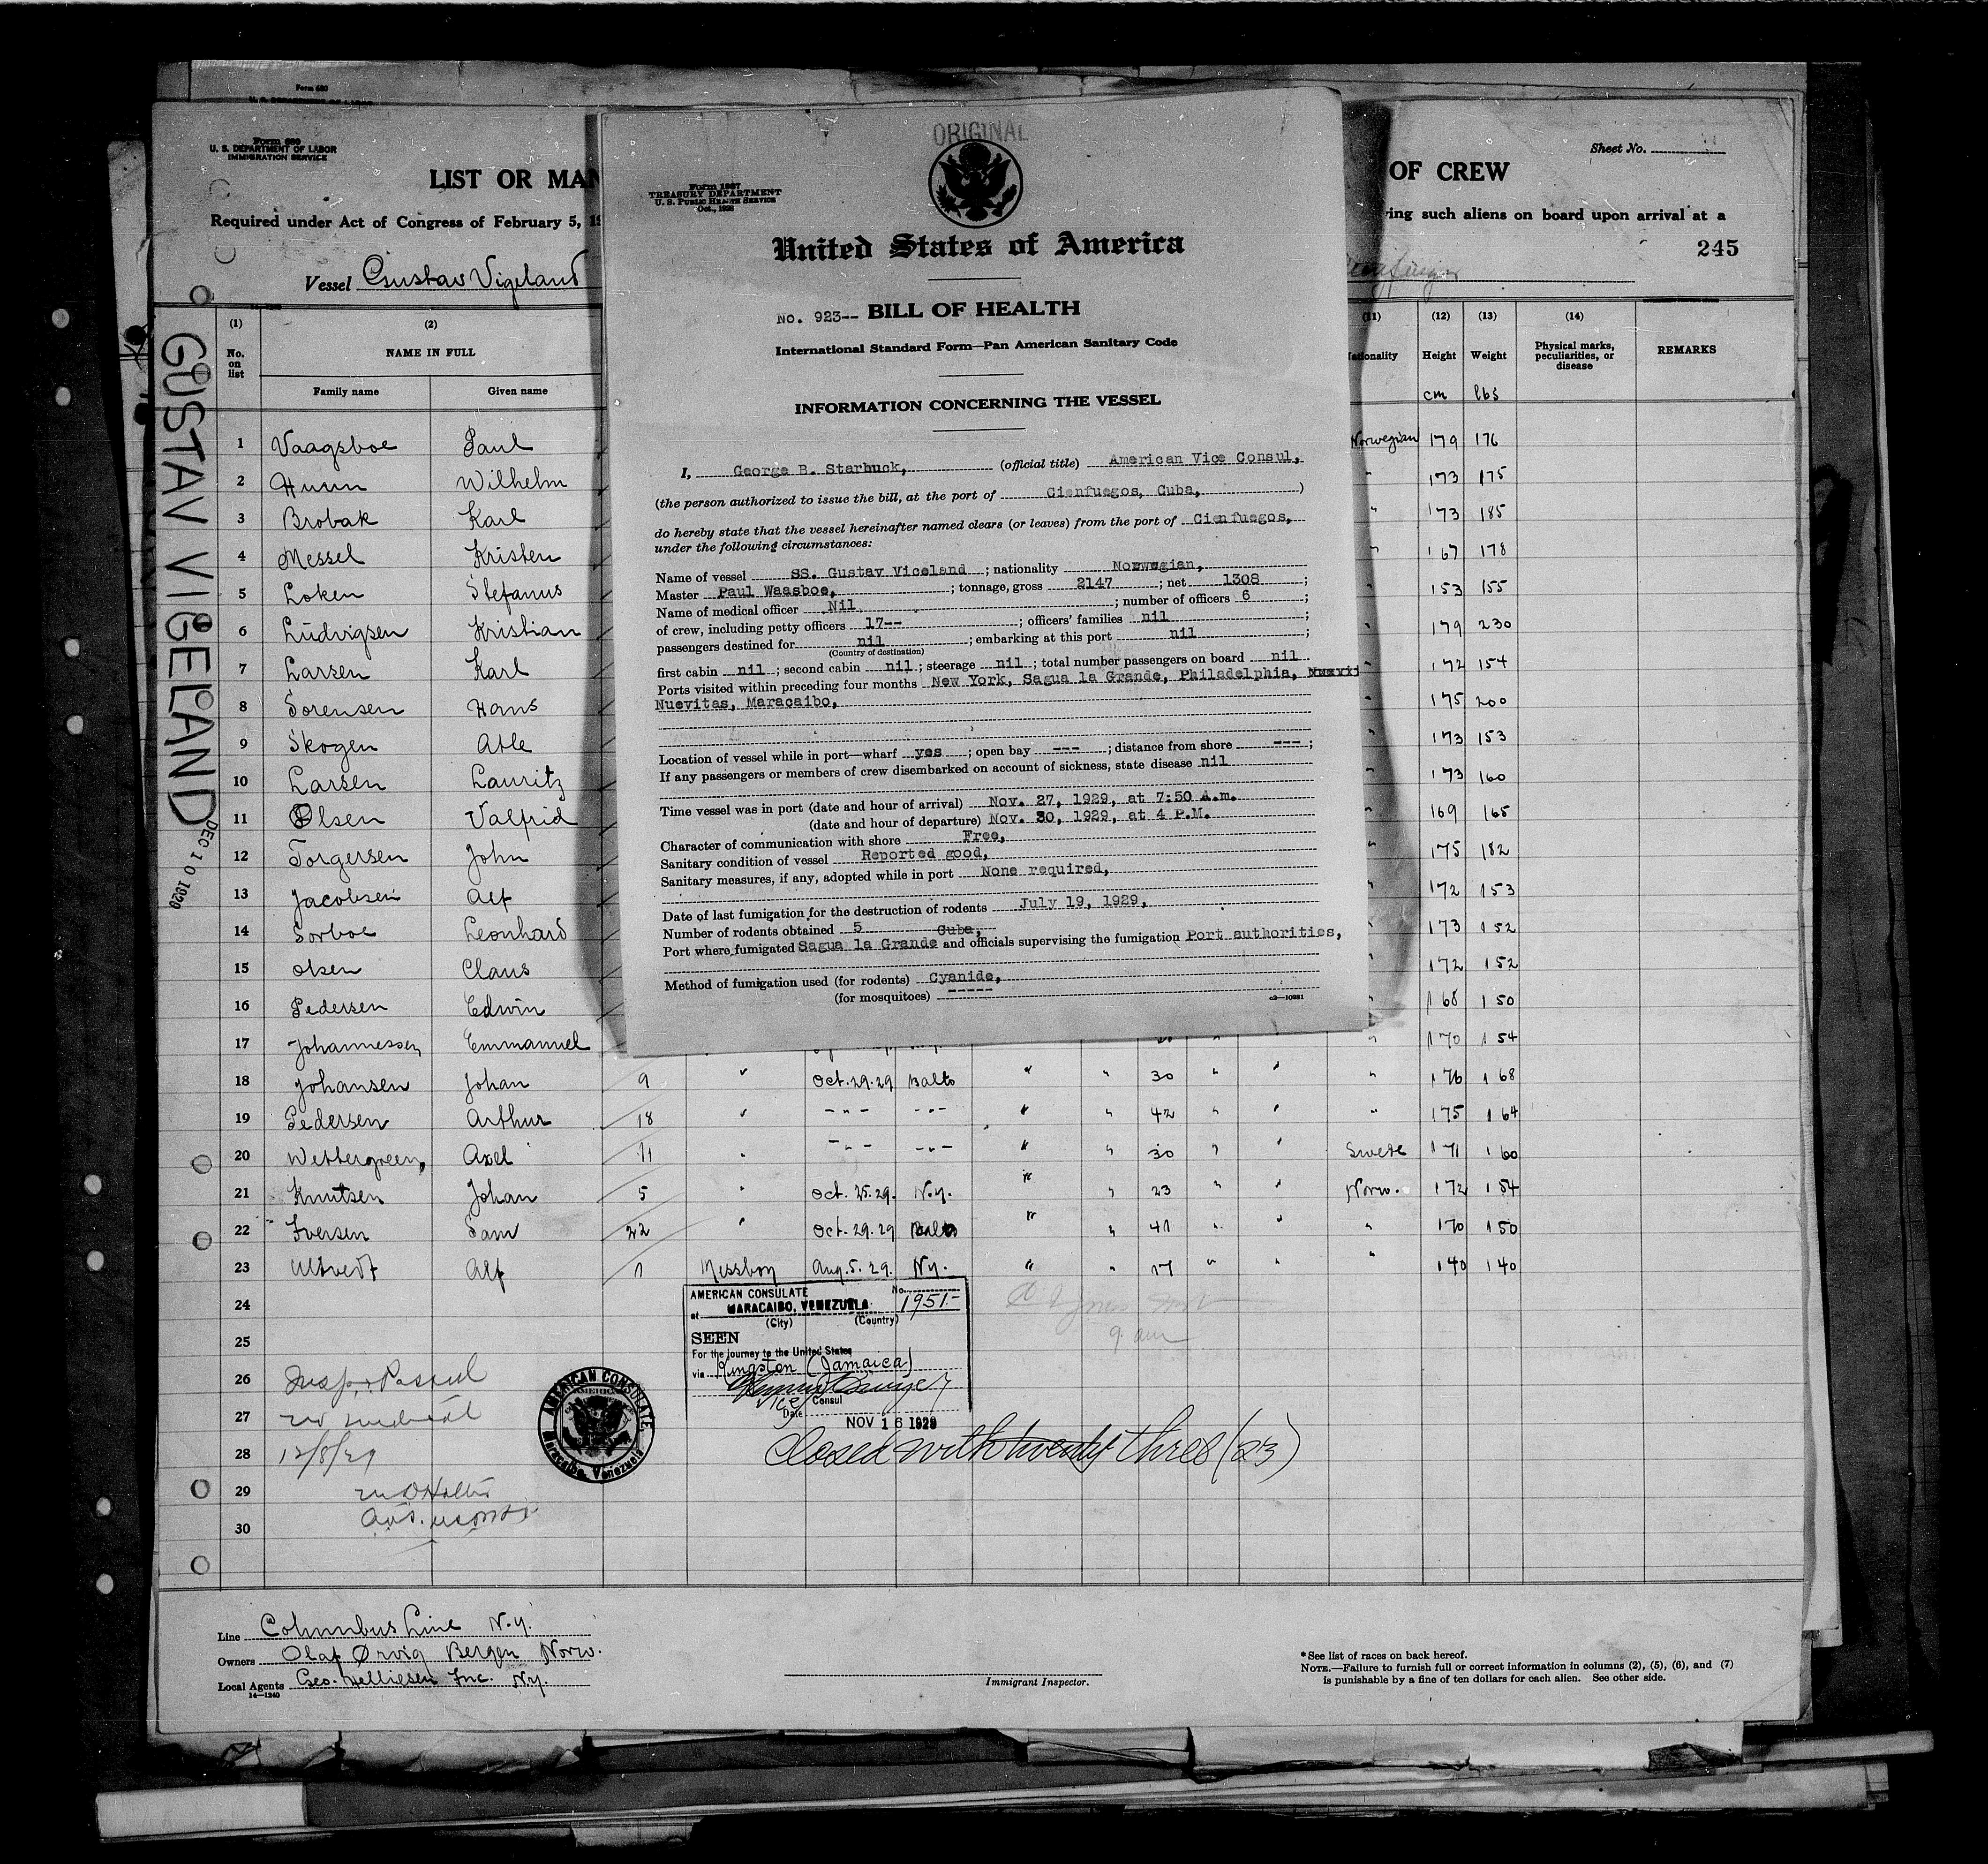 Form 680
Form 680
U. S. DEPARTMENT OF LABOR
IMMIGRATION SERVICE
LIST OR MAN
Required under Act of Congress of February 5, 19
Vessel Gustav Vigeland
OF CREW
Sheet No.
ying such aliens on board upon arrival at a
245
GUSTAV VIGELAND
DEC 10 1929
ORIGINAL
Form 1937
TREASURY DEPARTMENT
U. S. PUBLIC HEALTH SERVICE
Oct., 1928
United States of America
No. 923-- BILL OF HEALTH
International Standard Form—Pan American Sanitary Code
INFORMATION CONCERNING THE VESSEL
I, George B. Starbuck, (official title) American Vice Consul,
(the person authorized to issue the bill, at the port of Cienfuegos, Cuba, )
do hereby state that the vessel hereinafter named clears (or leaves) from the port of Cienfuegos,
under the following circumstances:
Name of vessel SS. Gustav Viceland ; nationality Norwegian,
Master Paul Waasboe, ; tonnage, gross 2147 ; net 1308 ;
Name of medical officer Nil ; number of officers 6 ;
of crew, including petty officers 17-- ; officers' families nil ;
passengers destined for nil ; embarking at this port nil ;
(Country of destination)
first cabin nil ; second cabin nil ; steerage nil ; total number passengers on board nil
Ports visited within preceding four months New York, Sagua la Grande, Philadelphia,
Nuevitas, Maracaibo,
Location of vessel while in port—wharf yes ; open bay --- ; distance from shore --- ;
If any passengers or members of crew disembarked on account of sickness, state disease nil
Time vessel was in port (date and hour of arrival) Nov. 27, 1929, at 7:50 A.m.
(date and hour of departure) Nov. 30, 1929, at 4 P.M.
Character of communication with shore Free,
Sanitary condition of vessel Reported good,
Sanitary measures, if any, adopted while in port None required,
Date of last fumigation for the destruction of rodents July 19, 1929,
Number of rodents obtained 5 Cuba,
Port where fumigated Sagua la Grande and officials supervising the fumigation Port authorities,
Method of fumigation used (for rodents) Cyanide,
(for mosquitoes) -----
c2—10281
(1) (2) (11) (12) (13) (14)
No. on list NAME IN FULL ationality Height Weight Physical marks, peculiarities, or disease REMARKS
Family name Given name cm lbs
1 Vaagsboe Paul Norwegian 179 176
2 Huun Wilhelm " 173 175
3 Brobak Karl " 173 185
4 Messel Kristen " 167 178
5 Loken Stefanus 153 155
6 Ludvigsen Kristian " 179 230
7 Larsen Karl " 172 154
8 Sorensen Hans " 175 200
9 Skogen Atle " 173 153
10 Larsen Lauritz " 173 160
11 Olsen Valfrid " 169 165
12 Torgersen John " 175 182
13 Jacobsen Alf " 172 153
14 Sorboe Leonhard " 173 152
15 Olsen Claus " 172 152
16 Pedersen Edwin " 168 150
17 Johannessen Emmanuel " 170 154
18 Johansen Johan 9 " Oct. 29.29 Balto " " 30 " " " 176 168
19 Pedersen Arthur 18 " -"- -"- " " 42 " " " 175 164
20 Wettergreen Axel 11 " -"- -"- " " 30 " " Swede 171 160
21 Knutsen Johan 5 " Oct. 25.29. N.y. " " 23 " " Norw. 172 154
22 Iversen Sam 22 " Oct. 29.29 Balto " " 41 " " " 170 150
23 Ultvedt Alf 1 Messboy Aug. 5. 29. Ny. " " 17 " " " 140 140
24
25
26
27
28 12/8/29
29
30
AMERICAN CONSULATE No. 1951.-
at MARACAIBO, VENEZUELA.
(City) (Country)
SEEN
For the journey to the United States
via Kingston (Jamaica)
Vice Consul
Date NOV 16 1929
AMERICAN CONSULATE
Maracaibo, Venezuela
9 am
Closed with twenty three (23)
Line Columbus Line N.y.
Owners Olaf Ørvig Bergen Norw.
Local Agents Geo. Helliesen Inc. Ny.
14—1240
Immigrant Inspector.
* See list of races on back hereof.
NOTE.—Failure to furnish full or correct information in columns (2), (5), (6), and (7)
is punishable by a fine of ten dollars for each alien. See other side.